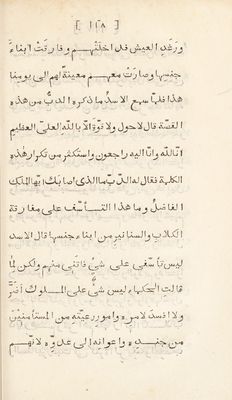 [ ١١٨ ]
ورغد العيش قد اخلقتهم وفارقت ابناء
جنسها وصارت معهم معينة لهم الى يومنا
هذا فلما سمع الاسد ما ذكره الدبّ من هذه
القصّة قال لا حول ولا قوّة الّا باللّه العلىّ العظيم
انّا للّه وانّا اليه راجعون واستكثر من تكرار هذه
الكلمة فقال له الدّب ما الذى اصابك ايّها الملك
الفاضل وما هذا التأسّف على مفارقة
الكلاب والسنانير من ابناء جنسها قال الاسد
ليس تأسّفى على شىٔ فاتنى منهم ولكن لما
قالت الحكماء ليس شىٔ على الملوك اضرّ
ولا افسد لامره وامور رعيّته من المستأمنين
من جنده واعوانه الى عدوّه لانّهم